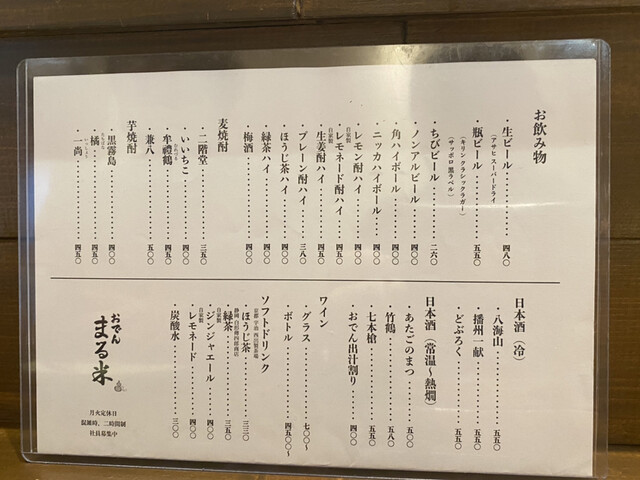 お飲み物
・生ビール・・・・・・・・・・四八〇
（アサヒスーパードライ）
・瓶ビール・・・・・・・・・・五五〇
（キリンクラシックラガー）
（サッポロ黒ラベル）
・ちびビール・・・・・・・・・二六〇
・ノンアルビール・・・・・四〇〇
・角ハイボール・・・・・・・四〇〇
・ニッカハイボール・・・・四〇〇
・レモン酎ハイ・・・・・・・四〇〇
自家製
・レモネード酎ハイ・・・・四五〇
自家製
・生姜酎ハイ・・・・・・・・四五〇
・プレーン酎ハイ・・・・・三八〇
・ほうじ茶ハイ・・・・・・・四〇〇
・緑茶ハイ・・・・・・・・・四〇〇
・梅酒・・・・・・・・・・・・四〇〇
麦焼酎
・二階堂・・・・・・・・・・三五〇
・いいちこ・・・・・・・・・四〇〇
・牟禮鶴・・・・・・・・・・四五〇
・兼八・・・・・・・・・・・・五〇〇
芋焼酎
・黒霧島・・・・・・・・・・四〇〇
・橘・・・・・・・・・・・・・四五〇
・一尚・・・・・・・・・・・・四五〇
日本酒（冷）
・八海山・・・・・・・・・・五五〇
・播州一献・・・・・・・・・五五〇
・どぶろく・・・・・・・・・五五〇
日本酒（常温〜熱燗）
・あたごのまつ・・・・・・五〇〇
・竹鶴・・・・・・・・・・・・五八〇
・七本槍・・・・・・・・・・五五〇
・おでん出汁割り・・・・・四〇〇
ワイン
・グラス・・・・・・・・・・七〇〇〜
・ボトル・・・・・・・・・・四五〇〇〜
ソフトドリンク
・ほうじ茶・・・・・・・・・三三〇
・緑茶・・・・・・・・・・・・三五〇
自家製
・ジンジャエール・・・・・四〇〇
自家製
・レモネード・・・・・・・・四〇〇
・炭酸水・・・・・・・・・・三〇〇
おでん
まる米
月火定休日
混雑時、二時間制
社員募集中